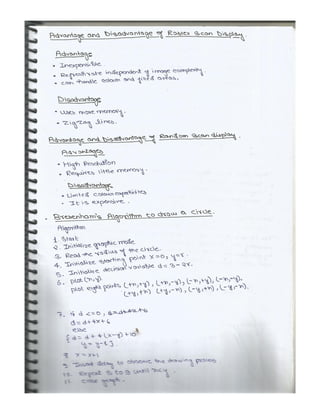 Advantage and Disadvantage of Raster Scan Display
Advantage
• Inexpensive
• Refresh rate independent of image complexity
• can handle colour and filled areas.
Disadvantage
• Uses more memory.
• Zigzag lines.
Advantage and Disadvantage of Random Scan display.
Advantages
• High Resolution
• Requires little memory.
Disadvantage
• Limited colour capabilities
• It is expensive.
• Bresenham's Algorithm to draw a circle.
Algorithm
1. Start
2. Initialize graphic mode
3. Read the radius of the circle.
4. Initialize starting point x=0, y=r.
5. Initialize decision variable d = 3-2r.
6. plot (x,y)
plot eight points (+x,+y), (+x,-y), (-x,+y), (-x,-y),
(+y,+x) (+y,-x), (-y,+x), (-y,-x).
7. if d<=0,
d=d+4x+6
else
{d=d+4(x-y)+10
y=y-1}
8 x=x+1
9. Insert delay to observe the drawing process
10. Repeat 5 to 9 until x<y.
11. close graph.